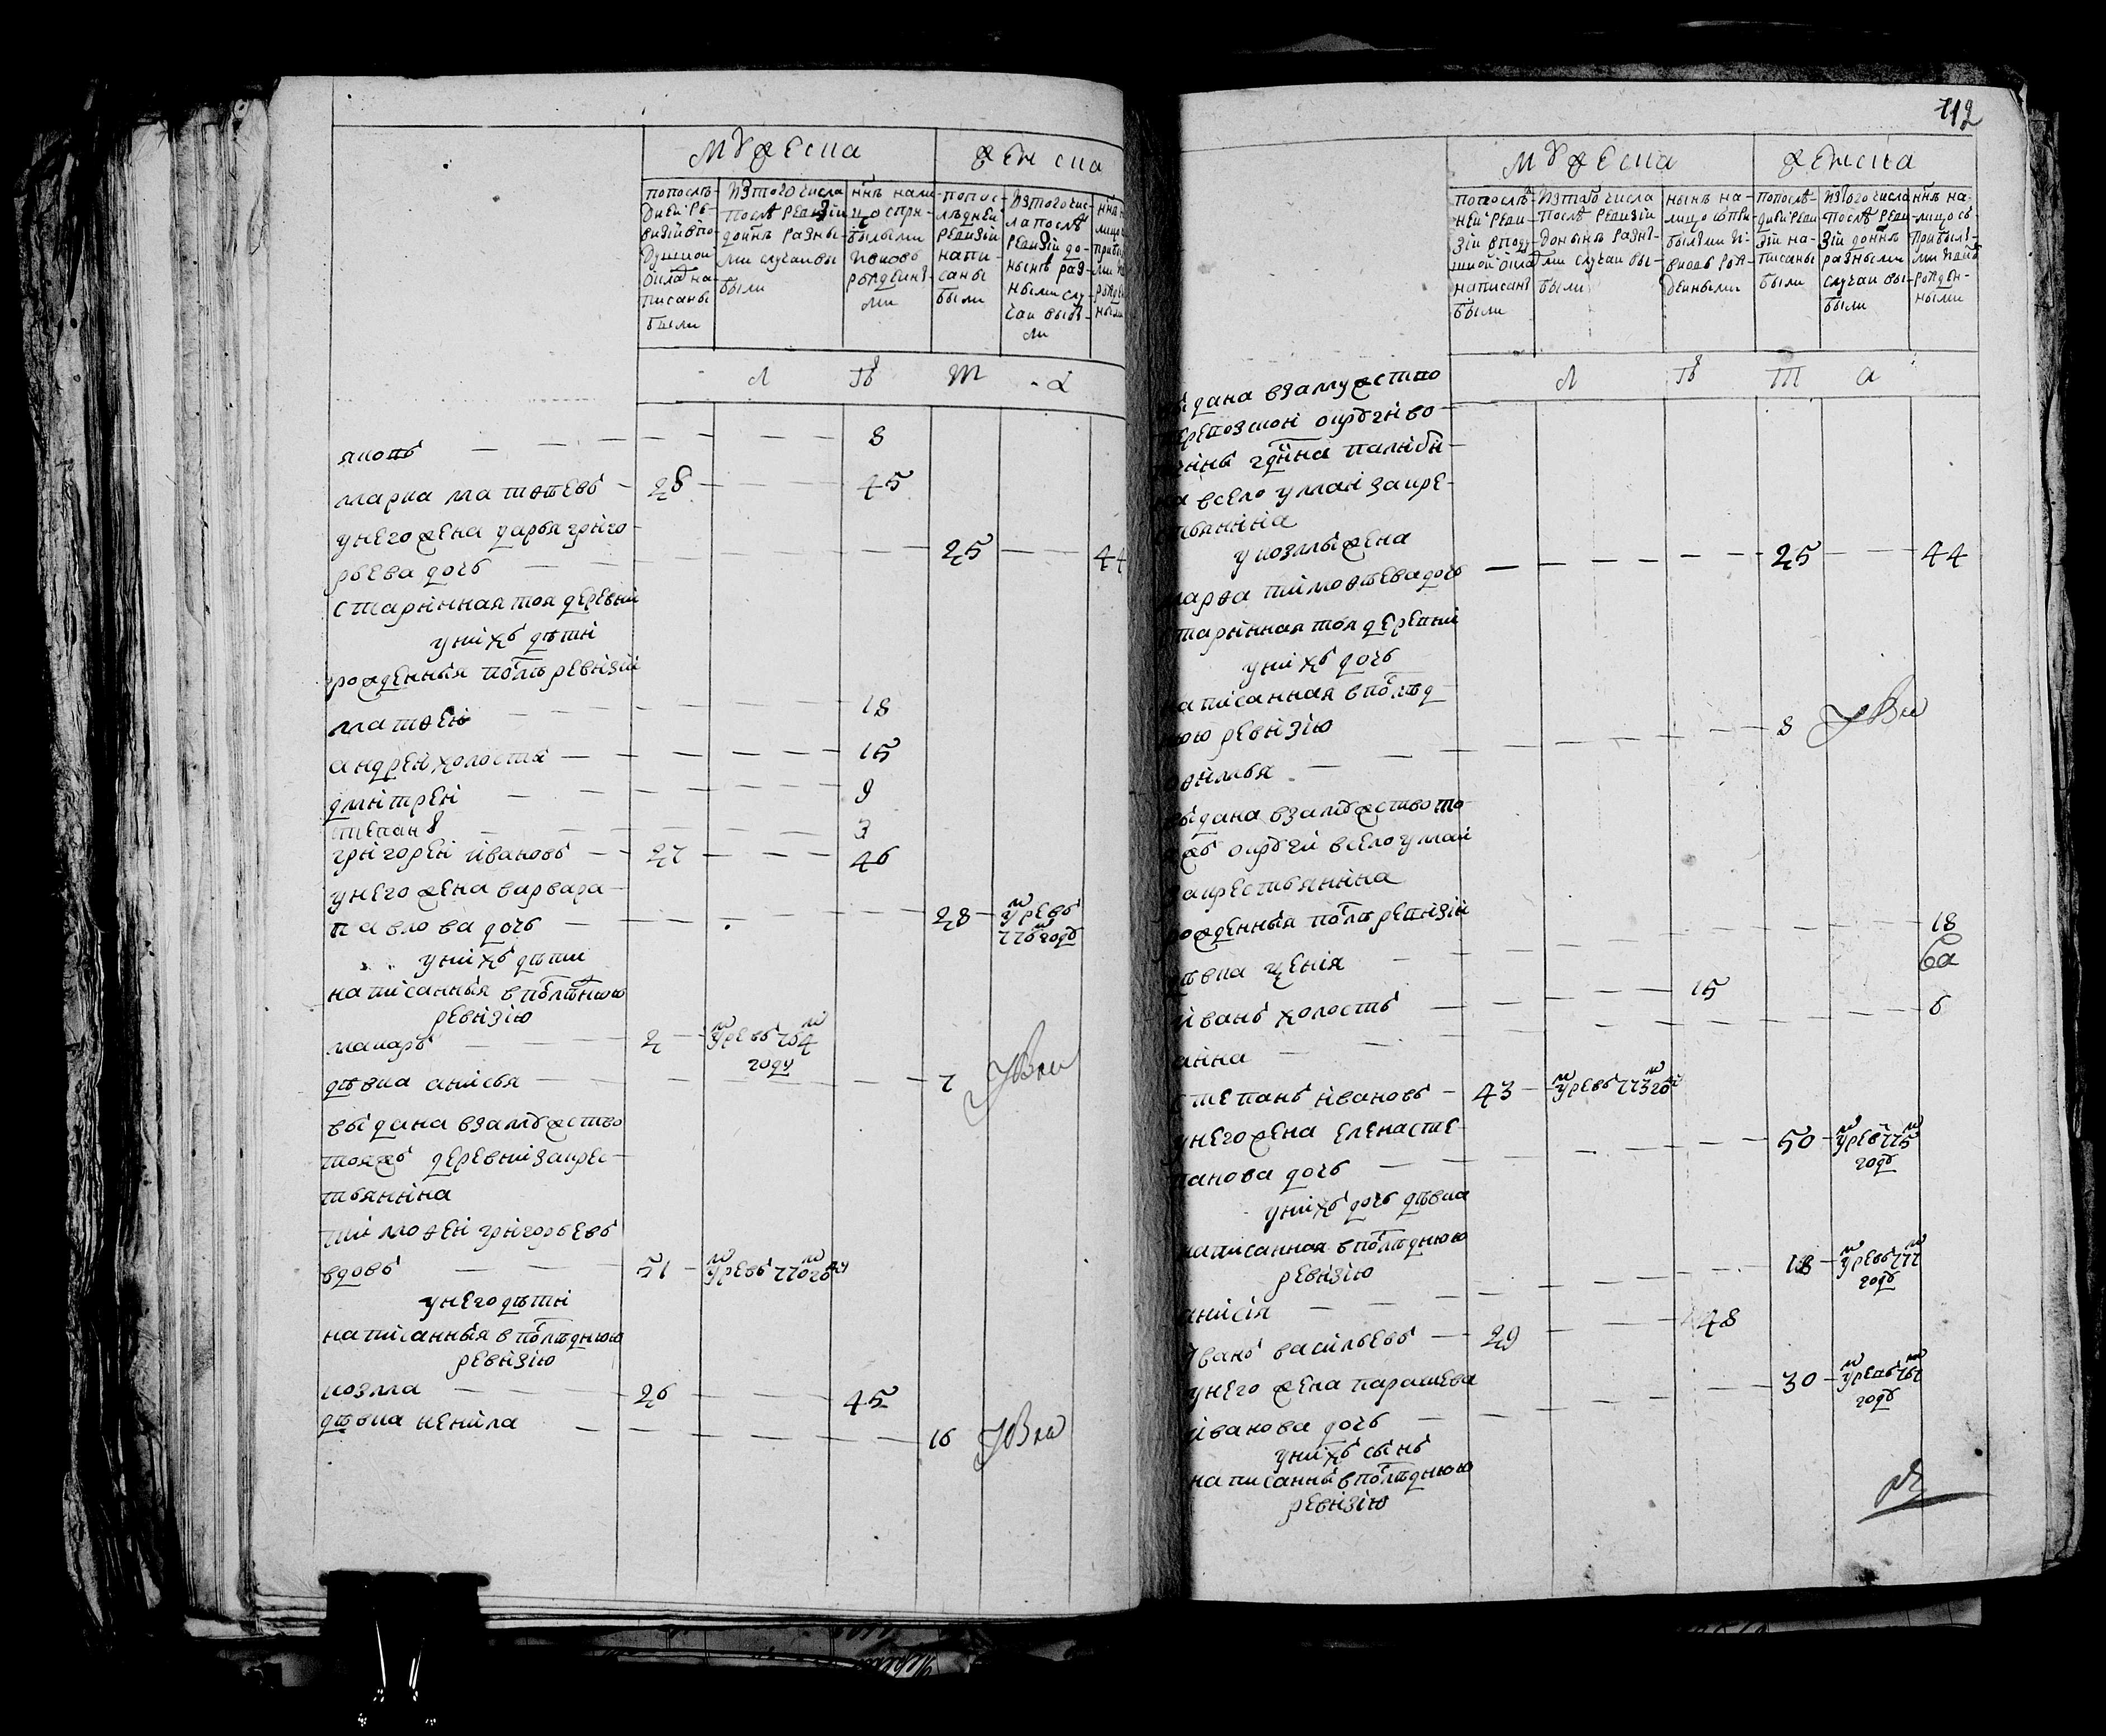 мужеска
женска
попослѣ-
дней ре-
визіи впо
душной
окладъ на-
писаны
были
изтого числа
послѣ ревизіи
донынѣ разны-
ми случаи вы
были
ннѣ нали-
цо спри-
былыми
ивновь
рожденны-
ми
попос-
лѣдней
ревизіи
напи-
саны
были
изтого чис-
ла послѣ
ревизіи до-
нынѣ раз-
ными слу-
чаи выбы-
ли
лѣта
яковъ 8
марка матвѣевъ 28 45
унего жена дарья григо-
рьева дочь 25 44
старинная тоя деревни
унихъ дѣти
рожденныя послѣ ревизіи
матвей 18
андреи холостъ 15
дмитреи 9
степанъ 3
григореи ивановъ 27 46
унего жена варвара
павлова дочь 28 умре въ 776м году
унихъ дѣти
написанныя в послѣднюю
ревизію
макаръ 2 умре въ 764м году
дѣвка анисья 7
выдана взамужство
тояжъ деревни закрес-
тьянина
тимофеи григорьевъ
вдовъ 51 умре въ 770м году
унего дѣти
написанныя в послѣднюю
ревизію
козма 26 45
дѣвка ненила 16
112
мужеска
женска
попослѣд-
ней реви-
зіи вподу-
шной окладъ
написаны
были
изтого числа
послѣ ревизіи
донынѣ разны-
ми случаи вы-
были
нынѣ на-
лицо спри-
былыми и-
вновь рож-
денными
попослѣ-
дней реви-
зіи на-
писаны
были
изтого числа
послѣ реви-
зіи доннѣ
разными
случаи вы-
были
ннѣ на-
лицо съ
прибылы-
ми ивновь
рожден-
ными
лѣта
выдана взамужство
округи во-
гдна
всело умай закре-
стьянина
у козмы жена
марѳа тимоѳѣева дочь 25 44
старинная тоя деревни
унихъ дочь
написанная в послѣд
нюю ревизію
офимья 8
выдана взамужство то-
яжъ округи всело умай
закрестьянина
рожденныя послѣ ревизіи
дѣвка ксенія 18
иванъ холостъ 15
анна 6
степанъ ивановъ 43 умре въ 773м году
унего жена елена сте-
панова дочь 50 умре 775м году
унихъ дочь дѣвка
написанная в послѣднюю
ревизію
анисія 18 умре въ 777м году
иванъ васильевъ 29 48
унего жена парасковья
иванова дочь 30 умре въ 767м году
унихъ сынъ
написанны в послѣднюю
ревизію